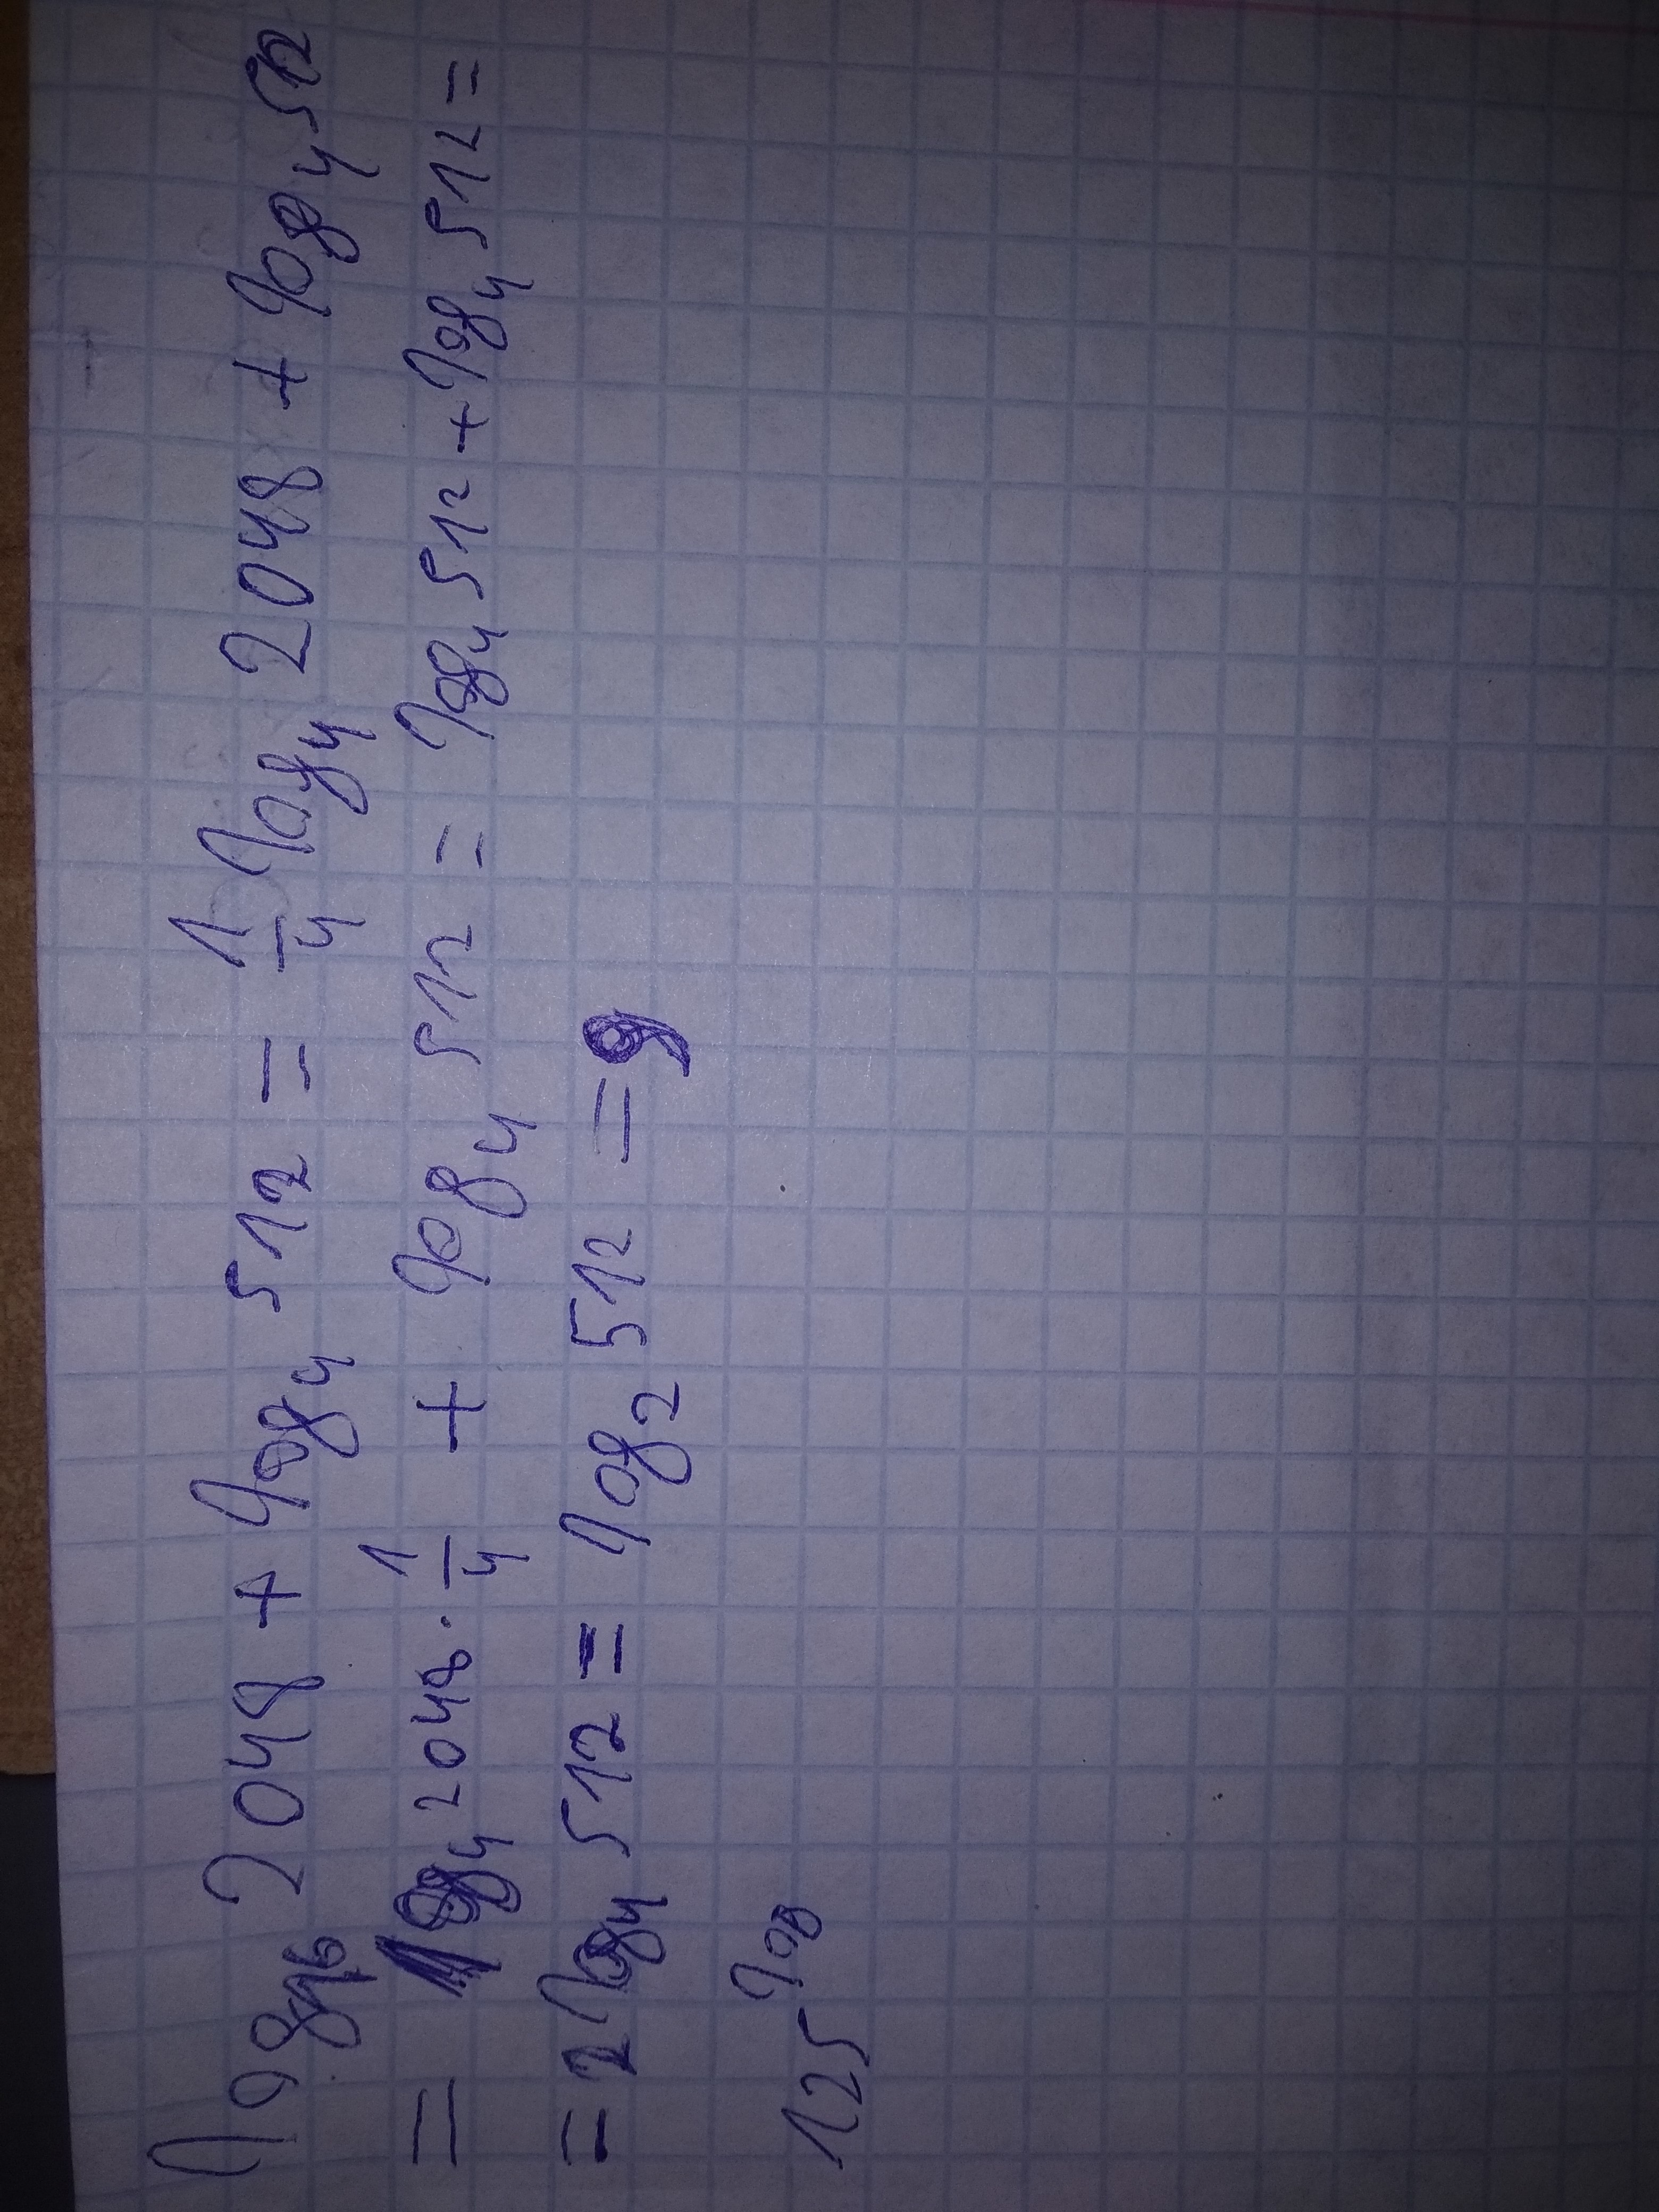 log₁₆ 2048 + log₄ 512 = 1/4 log₄ 2048 + log₄ 512
= log₄ 2048 · 1/4 + log₄ 512 = log₄ 512 + log₄ 512 =
= 2 log₄ 512 = log₂ 512 = 9
125^log